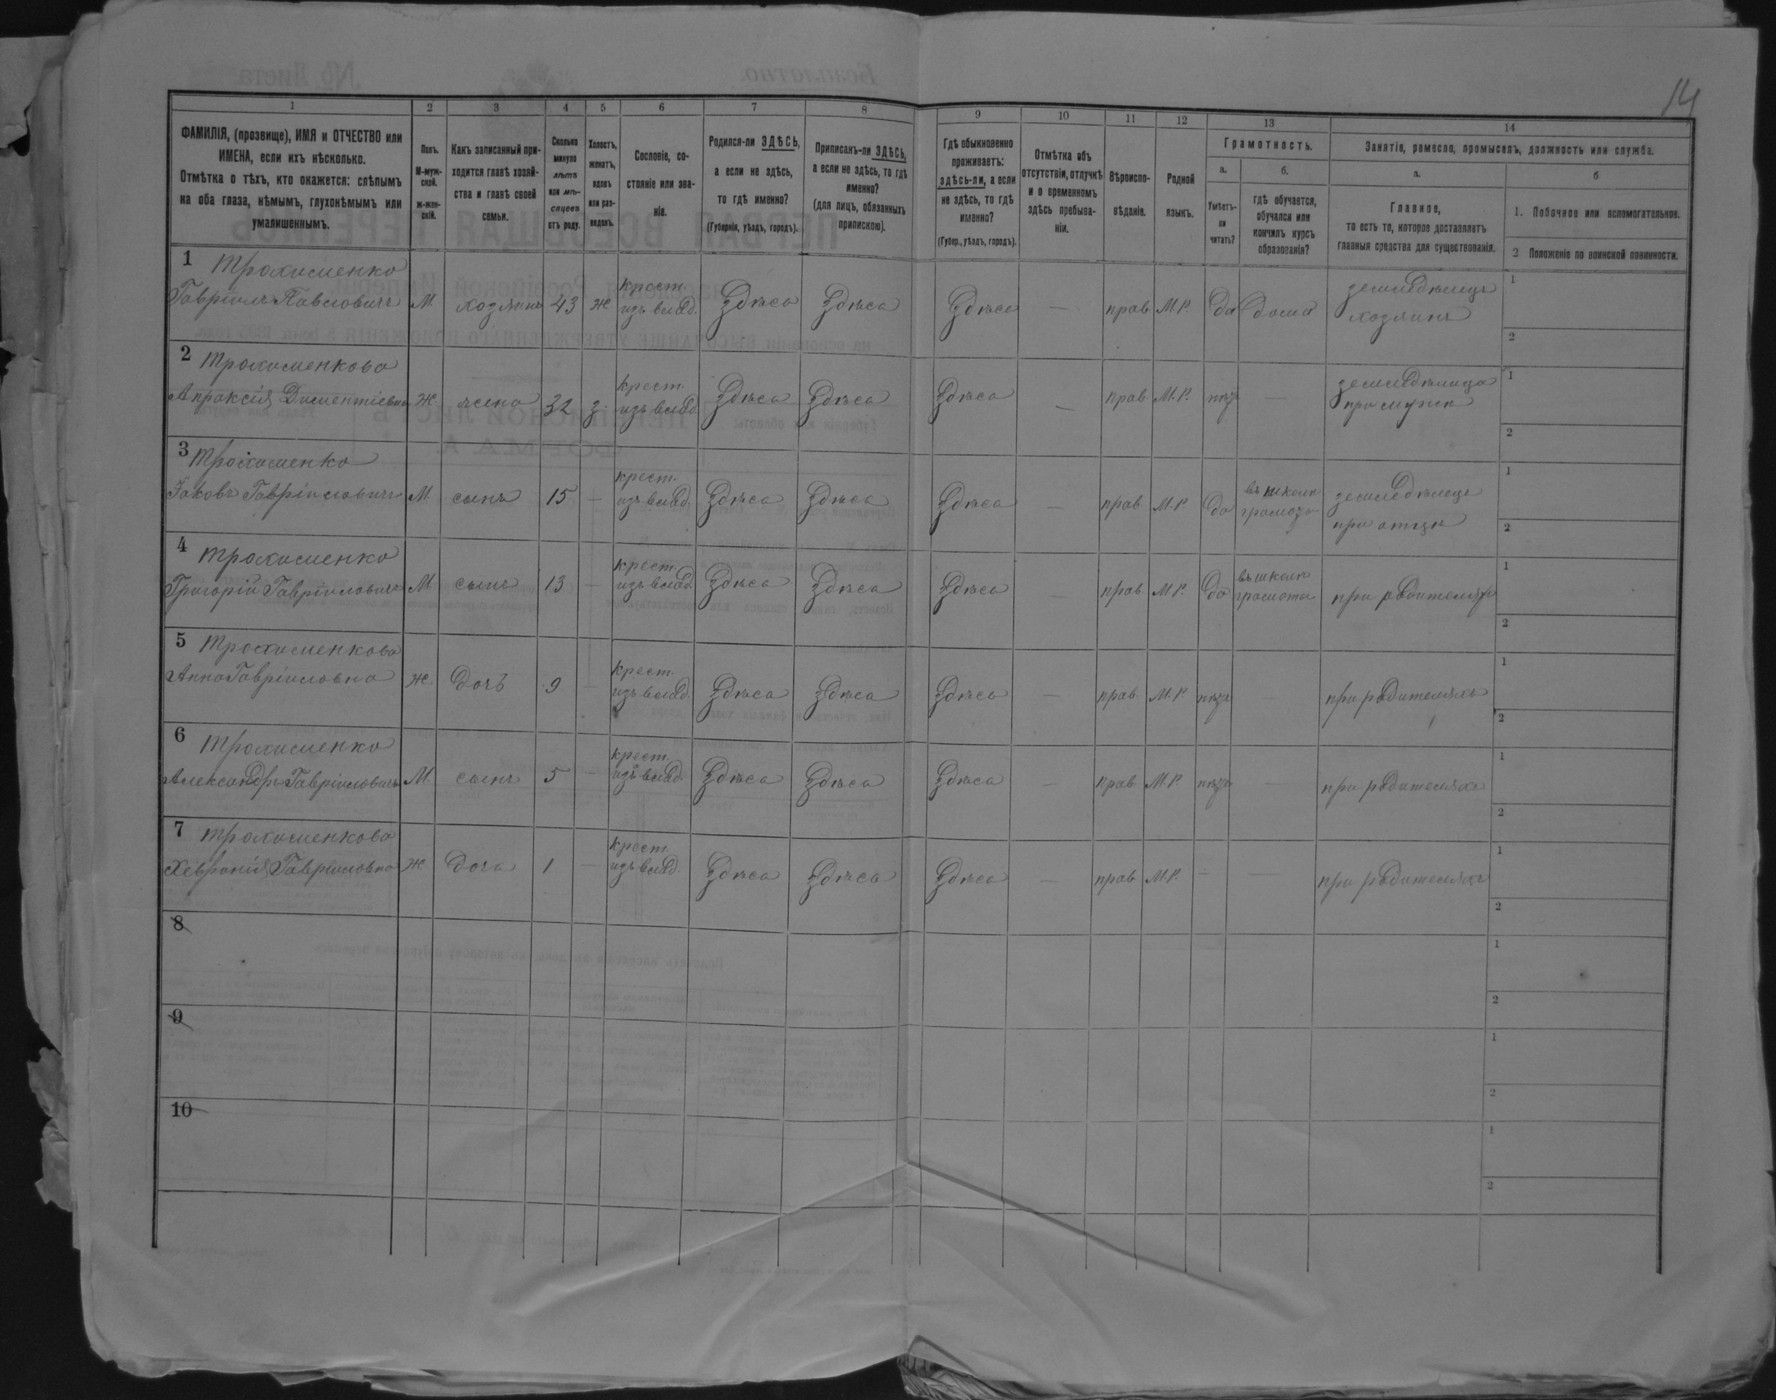 14
1 2 3 4 5 6 7 8 9 10 11 12 13 14
ФАМИЛІЯ, (прозвище), ИМЯ и ОТЧЕСТВО или
ИМЕНА, если ихъ нѣсколько.
Отмѣтка о тѣхъ, кто окажется: слѣпымъ
на оба глаза, нѣмымъ, глухонѣмымъ или
умалишеннымъ.
Полъ.
М-муж-
ской.
ж-жен-
скій.
Какъ записанный при-
ходится главѣ хозяй-
ства и главѣ своей
семьи.
Сколько
минуло
лѣтъ
или мѣ-
сяцевъ
отъ роду.
Холостъ,
женатъ,
вдовъ
или раз-
веденъ.
Сословіе, со-
стояніе или зва-
ніе.
Родился-ли ЗДѢСЬ,
а если не здѣсь,
то гдѣ именно?
(Губернія, уѣздъ, городъ).
Приписанъ-ли ЗДѢСЬ,
а если не здѣсь, то гдѣ
именно?
(для лицъ, обязанныхъ
припискою).
Гдѣ обыкновенно
проживаетъ:
здѣсь-ли, а если
не здѣсь, то гдѣ
именно?
(Губер., уѣздъ, городъ).
Отмѣтка объ
отсутствіи, отлучкѣ
и о временномъ
здѣсь пребыва-
ніи.
Вѣроиспо-
вѣданіе.
Родной
языкъ.
Грамотность.
а.
Умѣетъ-
ли
читать?
б.
гдѣ обучается,
обучался или
кончилъ курсъ
образованія?
Занятіе, ремесло, промыселъ, должность или служба.
а.
Главное,
то есть то, которое доставляетъ
главныя средства для существованія.
б
1. Побочное или вспомогательное.
2 Положеніе по воинской повинности.
1 Трохименко
Гавріилъ Павловичъ М хозяинъ 43 ж крест. изъ влад. Здѣсь Здѣсь Здѣсь — прав М.Р. Да дома земледѣлецъ хозяинъ 1 2
2 Трохименкова
Апраксія Дементіевна Ж жена 32 з. крест. изъ влад. Здѣсь Здѣсь Здѣсь — прав М.Р. нѣтъ — земледѣлица при мужѣ 1 2
3 Трохименко
Яковъ Гавріиловичъ М сынъ 15 — крест. изъ влад. Здѣсь Здѣсь Здѣсь — прав М.Р. да въ школѣ грамоты земледѣлецъ при отцѣ 1 2
4 Трохименко
Григорій Гавріиловичъ М сынъ 13 — крест. изъ влад. Здѣсь Здѣсь Здѣсь — прав М.Р. да въ школѣ грамоты при родителяхъ 1 2
5 Трохименкова
Анна Гавріиловна ж дочь 9 — крест. изъ влад. Здѣсь Здѣсь Здѣсь — прав М.Р. нѣтъ — при родителяхъ 1 2
6 Трохименко
Александръ Гавріиловичъ М. сынъ 5 — крест. изъ влад. Здѣсь Здѣсь Здѣсь — прав М.Р. нѣтъ — при родителяхъ 1 2
7 Трохименкова
Хевронія Гавриловна ж дочь 1 — крест. изъ влад. Здѣсь Здѣсь Здѣсь — прав М.Р. — — при родителяхъ 1 2
8 1 2
9 1 2
10 1 2